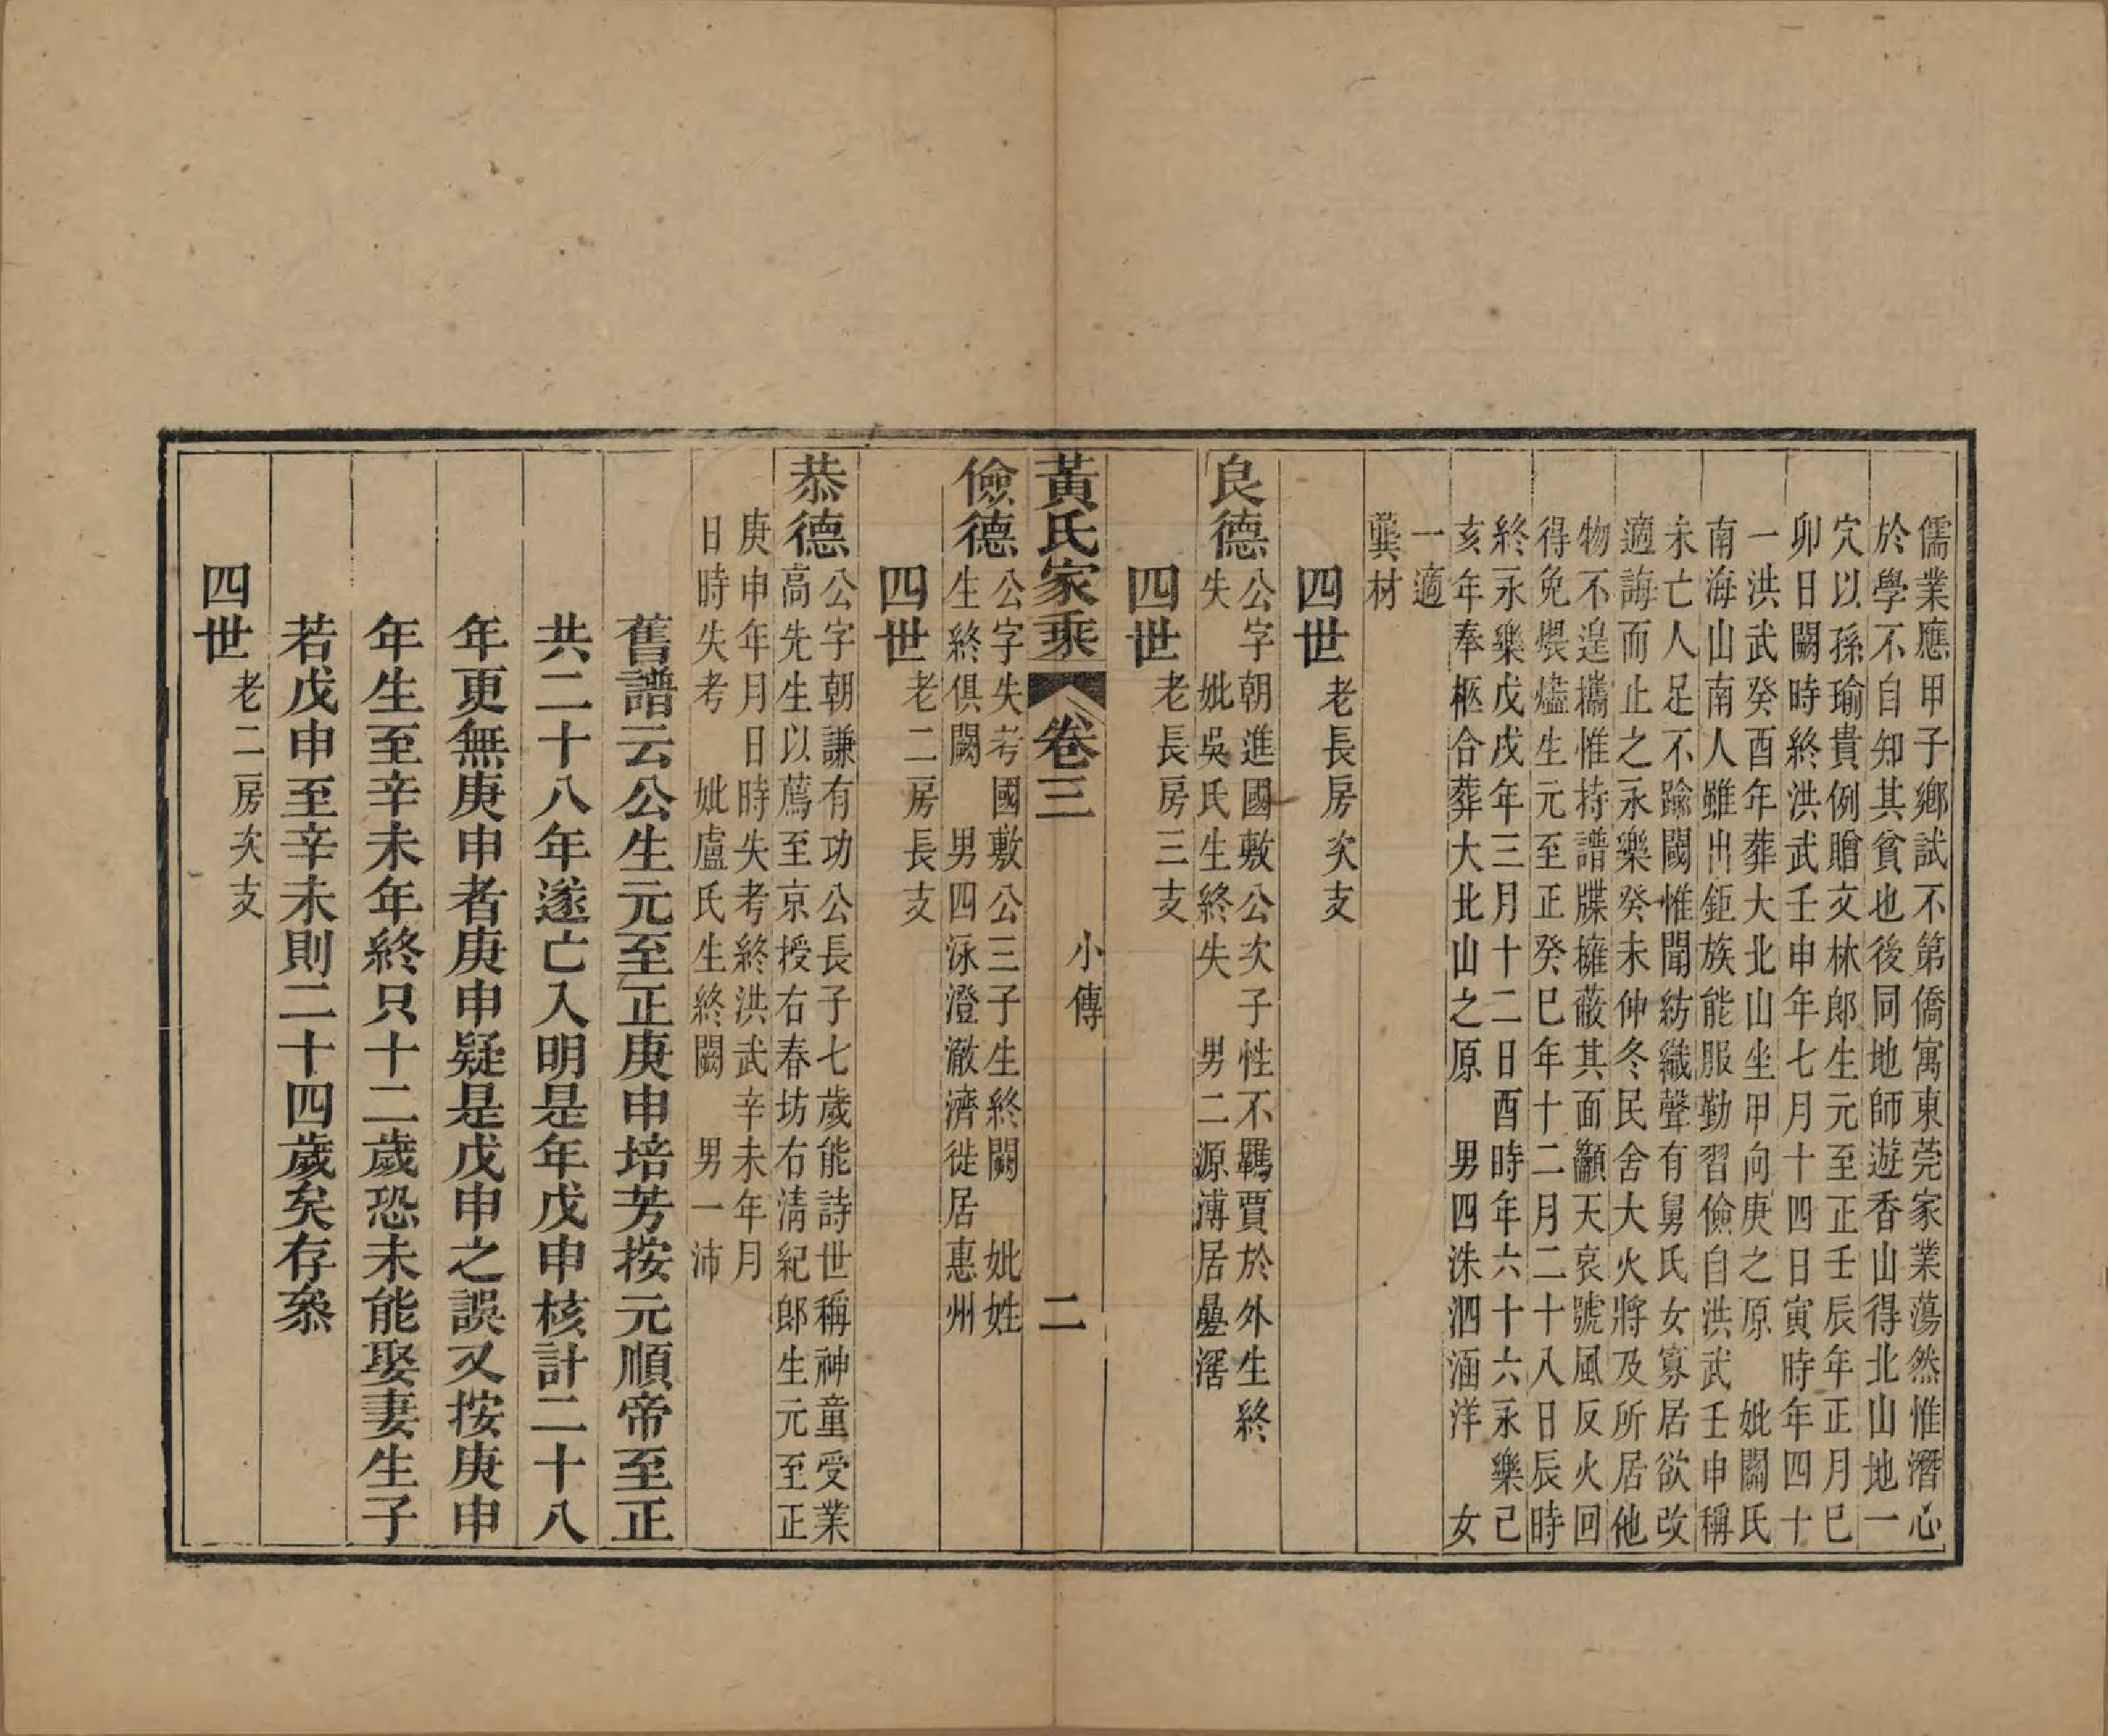 儒業應甲子鄉試不第僑寓東莞家業蕩然惟潛心
於學不自知其貧也後同地師遊香山得北山地一
穴以孫瑜貴例贈文林郎生元至正壬辰年正月巳
卯日闕時終洪武壬申年七月十四日寅時年四十
一洪武癸酉年葬大北山坐甲向庚之原　妣關氏
南海山南人雖出鉅族能服勤習儉自洪武壬申稱
未亡人足不踰閾惟聞紡織聲有舅氏女寡居欲改
適誨而止之永樂癸未仲冬民舍大火將及所居他
物不遑攜惟持譜牒擁蔽其面顲天哀號風反火回
得免煨爐生元至正癸巳年十二月二十八日辰時
終永樂戊戌年三月十二日酉時年六十六永樂己
亥年奉柩合葬大北山之原　男四洙泗涵洋　女
一適
龔材
四世老長房次支
良德公字朝進國敷公次子性不羈賈於外生終
失　妣吳氏生終失　男二源溥居壘滘
四世老長房三支
黃氏家乘　卷三　小傳　二
儉德公字失考國敷公三子生終闕　妣姓
生終俱闕　男四泳澄澈濟徙居惠州
四世老二房長支
恭德公字朝謙有功公長子七歲能詩世稱神童受業
高先生以薦至京授右春坊右清紀郎生元至正
庚申年月日時失考終洪武辛未年月
日時失考　妣盧氏生終闕　男一沛
舊譜云公生元至正庚申培芳按元順帝至正
共二十八年遂亡入明是年戊申核計二十八
年更無庚申者庚申疑是戊申之誤又按庚申
年生至辛未年終只十二歲恐未能娶妻生子
若戊申至辛未則二十四歲矣存叅
四世老二房次支